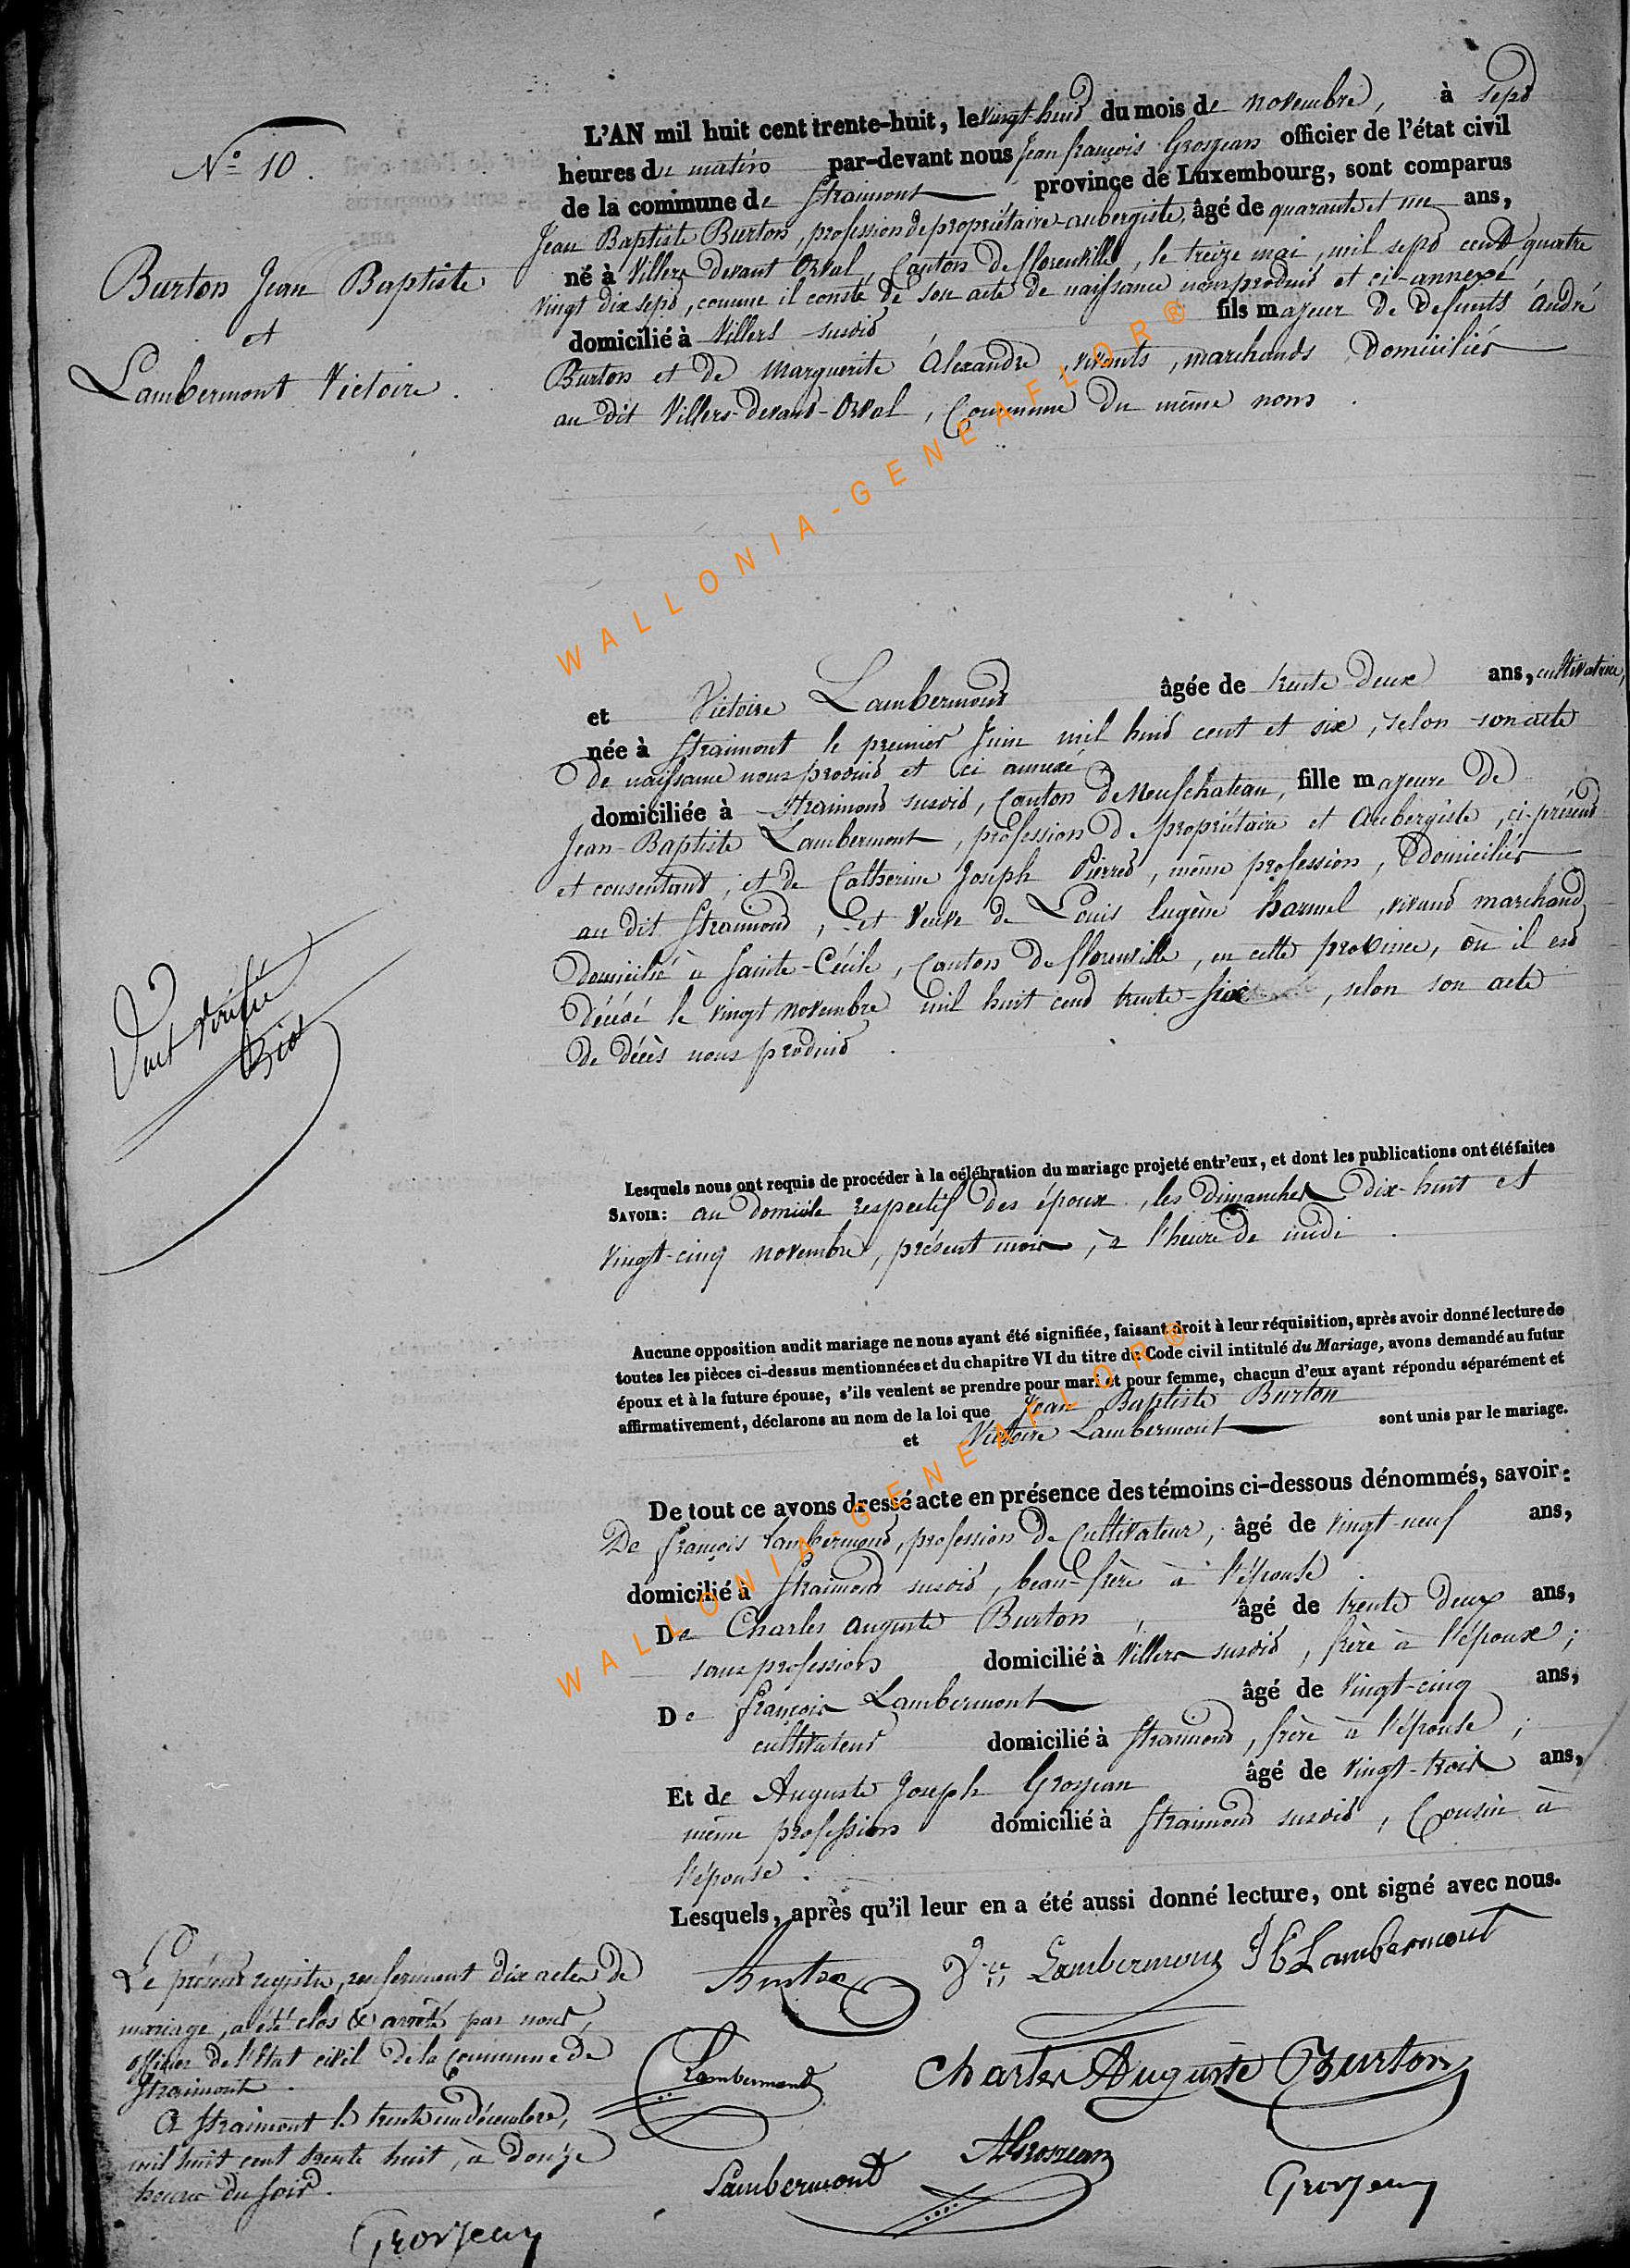 N° 10.
Burton Jean Baptiste
et
Lambermont Victoire.
L'AN mil huit cent trente-huit, le vingt-huit du mois de novembre, à sept
heures du matin par-devant nous Jean françois Grosjean officier de l'état civil
de la commune de Straimont province de Luxembourg, sont comparus
Jean Baptiste Burton, profession de propriétaire-aubergiste, âgé de quarante et une ans,
né à Villers devant Orval, Canton de florenville, le treize mai, mil sept cent quatre
vingt dix sept, comme il conste de son acte de naissance nous produit et ci-annexé,
domicilié à Villers susdit fils majeur de défunts André
Burton et de Marguerite Alexandre, vivants, marchands domiciliés
au dit Villers-devant-Orval, Commune du même nom.
et Victoire Lambermont âgée de trente deux ans, cultivatrice,
née à Straimont le premier Juin mil huit cent et six, selon son acte
de naissance nous produit et ci annexé,
domiciliée à Straimont susdit, Canton de Neufchateau, fille majeure de
Jean-Baptiste Lambermont, profession de propriétaire et Aubergiste, ci-présent
et consentant, et de Catherine Joseph Pierret, même profession, domiciliés
au dit Straimont, et Veuve de Louis Eugène Harmel, vivant marchand
domicilié à Sainte-Cécile, Canton de florenville, en cette province, où il est
décédé le vingt novembre mil huit cent trente-six, selon son acte
de décès nous produit.
Vu et vérifié
Lesquels nous ont requis de procéder à la célébration du mariage projeté entr'eux, et dont les publications ont été faites
SAVOIR: au domicile respectif des époux, les dimanches dix-huit et
vingt-cinq novembre, présent mois, à l'heure de midi.
Aucune opposition audit mariage ne nous ayant été signifiée, faisant droit à leur réquisition, après avoir donné lecture de
toutes les pièces ci-dessus mentionnées et du chapitre VI du titre du Code civil intitulé du Mariage, avons demandé au futur
époux et à la future épouse, s'ils veulent se prendre pour mari et pour femme, chacun d'eux ayant répondu séparément et
affirmativement, déclarons au nom de la loi que Jean Baptiste Burton
et Victoire Lambermont sont unis par le mariage.
De tout ce avons dressé acte en présence des témoins ci-dessous dénommés, savoir:
De françois Lambermont, profession de Cultivateur, âgé de vingt-neuf ans,
domicilié à Straimont susdit, beau-frère à l'épouse.
De Charles Auguste Burton, âgé de trente deux ans,
sans profession domicilié à Villers susdit, frère à l'époux;
De françois Lambermont âgé de vingt-cinq ans,
cultivateur domicilié à Straimont, frère à l'épouse;
Et de Auguste Joseph Grosjean âgé de vingt-trois ans,
même profession domicilié à Straimont susdit, Cousin à
l'épouse.
Lesquels, après qu'il leur en a été aussi donné lecture, ont signé avec nous.
Burton Vre Lambermont JB Lambermont
Lambermont Charles Auguste Burton
Lambermont AGrosjean Grosjean
Le présent registre, renfermant dix actes de
mariage, a été clos & arrêté par nous,
officier de l'Etat civil de la Commune de
Straimont.
A Straimont le trente un décembre,
mil huit cent trente huit, à douze
heures du soir.
Grosjean
WALLONIA-GENEAFLOR®
WALLONIA-GENEAFLOR®